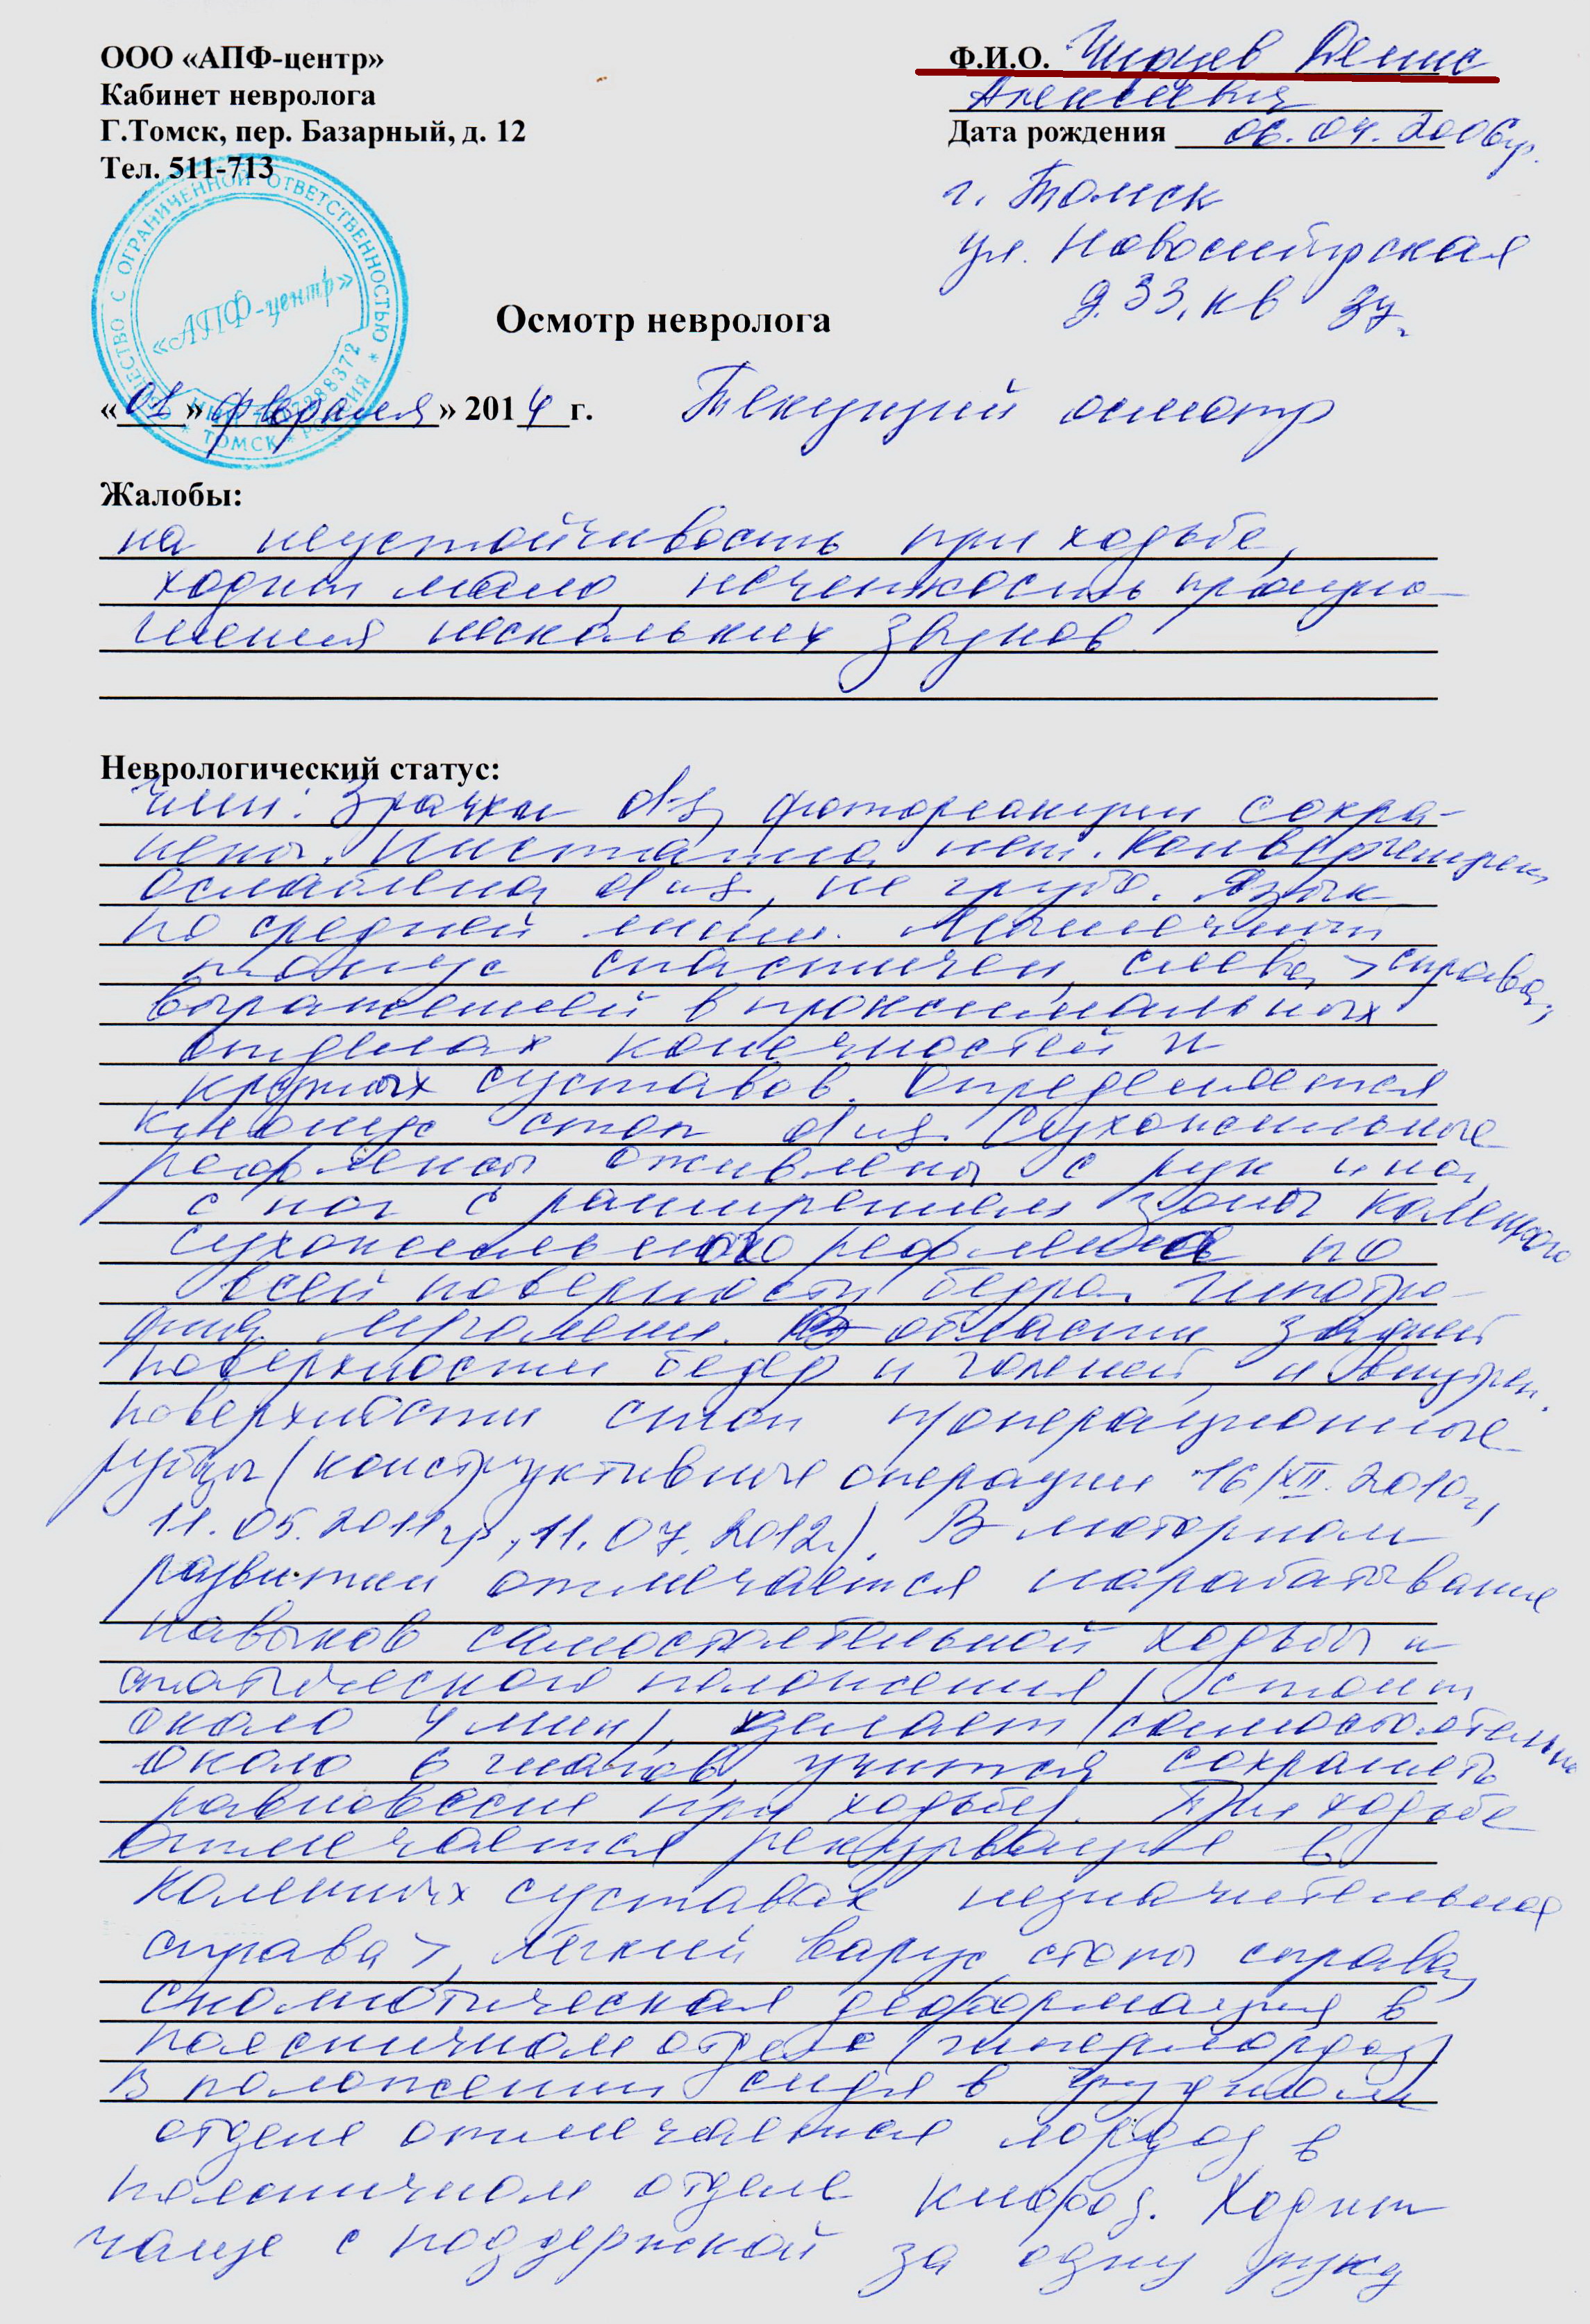 ООО «АПФ-центр»
Кабинет невролога
Г.Томск, пер. Базарный, д. 12
Тел. 511-713
Ф.И.О. Денис
Алексеевич
Дата рождения 06.04.2006гр.
г. Томск
ул. Новосибирская
д. 33, кв 34.
ОБЩЕСТВО С ОГРАНИЧЕННОЙ ОТВЕТСТВЕННОСТЬЮ * РОССИЯ * ТОМСК *
«АПФ-центр»
Осмотр невролога
«01» февраля» 2014 г. Текущий осмотр
Жалобы:
на неустойчивость при ходьбе,
ходит мало, нечеткость произно-
шения нескольких звуков
Неврологический статус:
ЧМН: Зрачки d=s, фотореакции сохра-
нены. Нистагма нет. Конвергенция
ослаблена d и s, не грубо. Язык
по средней линии. Мышечный
тонус спастичен, слева > справа,
выраженней в проксимальных
отделах конечностей и
крупных суставов. Определяется
клонус стоп d и s. Сухожильные
рефлексы оживлены с рук и ног,
с ног с расширением зоны коленного
сухожильного рефлекса по
всей поверхности бедра. Гипотро-
фия голени. В области задней
поверхности бедер и голеней, и внутрен.
поверхности стоп п/операционные
рубцы (конструктивные операции 16/XII.2010г,
11.05.2011гр, 11.07.2012г). В моторном
развитии отмечается нарабатывание
навыков самостоятельной ходьбы и
статического положения (стоит
около 4 мин), делает (самостоятельно
около 6 шагов, учится сохранять
равновесие при ходьбе). При ходьбе
отмечается рекурвация в
коленных суставах незначительная
справа >, легкий варус стопы справа,
сколиотическая деформация в
поясничном отделе (гиперлордоз)
В положении сидя в грудном
отделе отмечается лордоз в
поясничном отделе кифоз. Ходит
чаще с поддержкой за одну руку